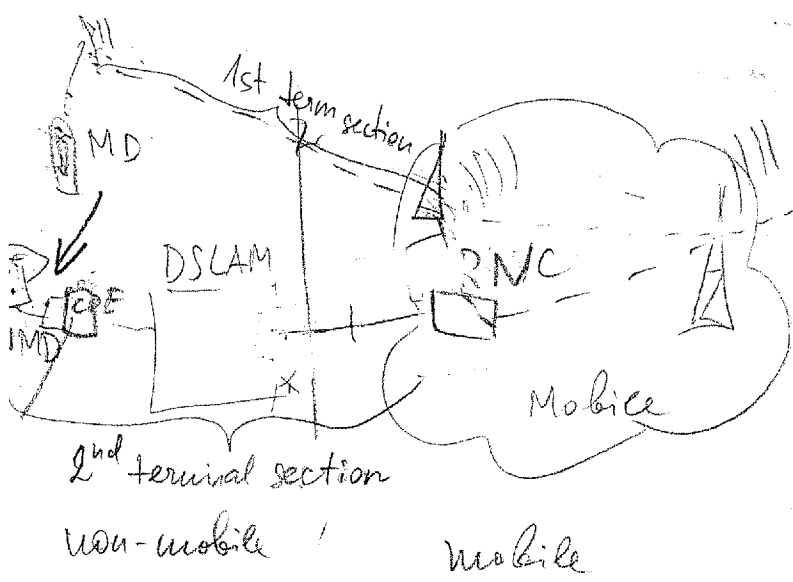 1st term section
MD
DSLAM
RNC
CPE
MD
X
Mobile
2nd terminal section
non-mobile / mobile